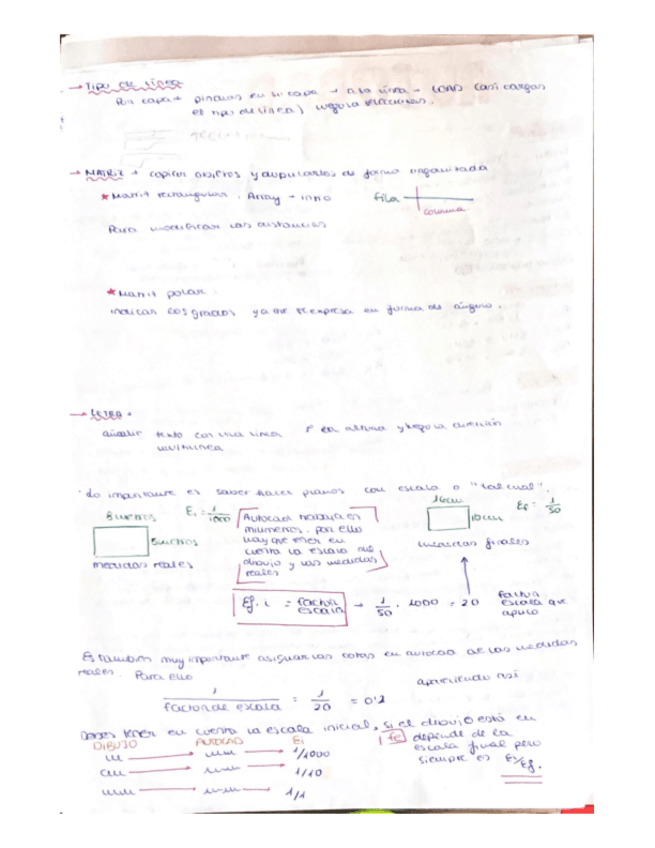 → TIPO DE LÍNEA
Por capa → pinchas en su capa → a la línea → (así cargas
el tipo de línea)
→ MATRIZ → copiar objetos y duplicarlos de forma organizada
* Matriz rectangular. Array → intro
fila
columna
Para modificar las distancias
* Matriz polar.
indicar los grados ya que se expresa en forma de ángulo.
→ LETRA.
añadir texto con una línea
multilínea
Lo importante es saber hacer planos con escala o "tal cual".
8 metros
Ei = 1/1000
5 metros
medidas reales
Autocad trabaja en
milímetros, por ello
hay que tener en
cuenta la escala del
dibujo y las medidas
reales
16cm
10cm
Ef = 1/50
medidas finales
Ef. i = factor
escala
→ 1/50 . 1000 = 20
factor
escala que
aplico
Es también muy importante asignar las cotas en autocad de las medidas
reales. Para ello
1/factor de escala = 1/20 = 0'2
apareciendo así
Debes tener en cuenta la escala inicial, si el dibujo está en
DIBUJO AUTOCAD Ei
m → mm → 1/1000
cm → mm → 1/10
mm → mm → 1/1
fe depende de la
escala final pero
siempre es